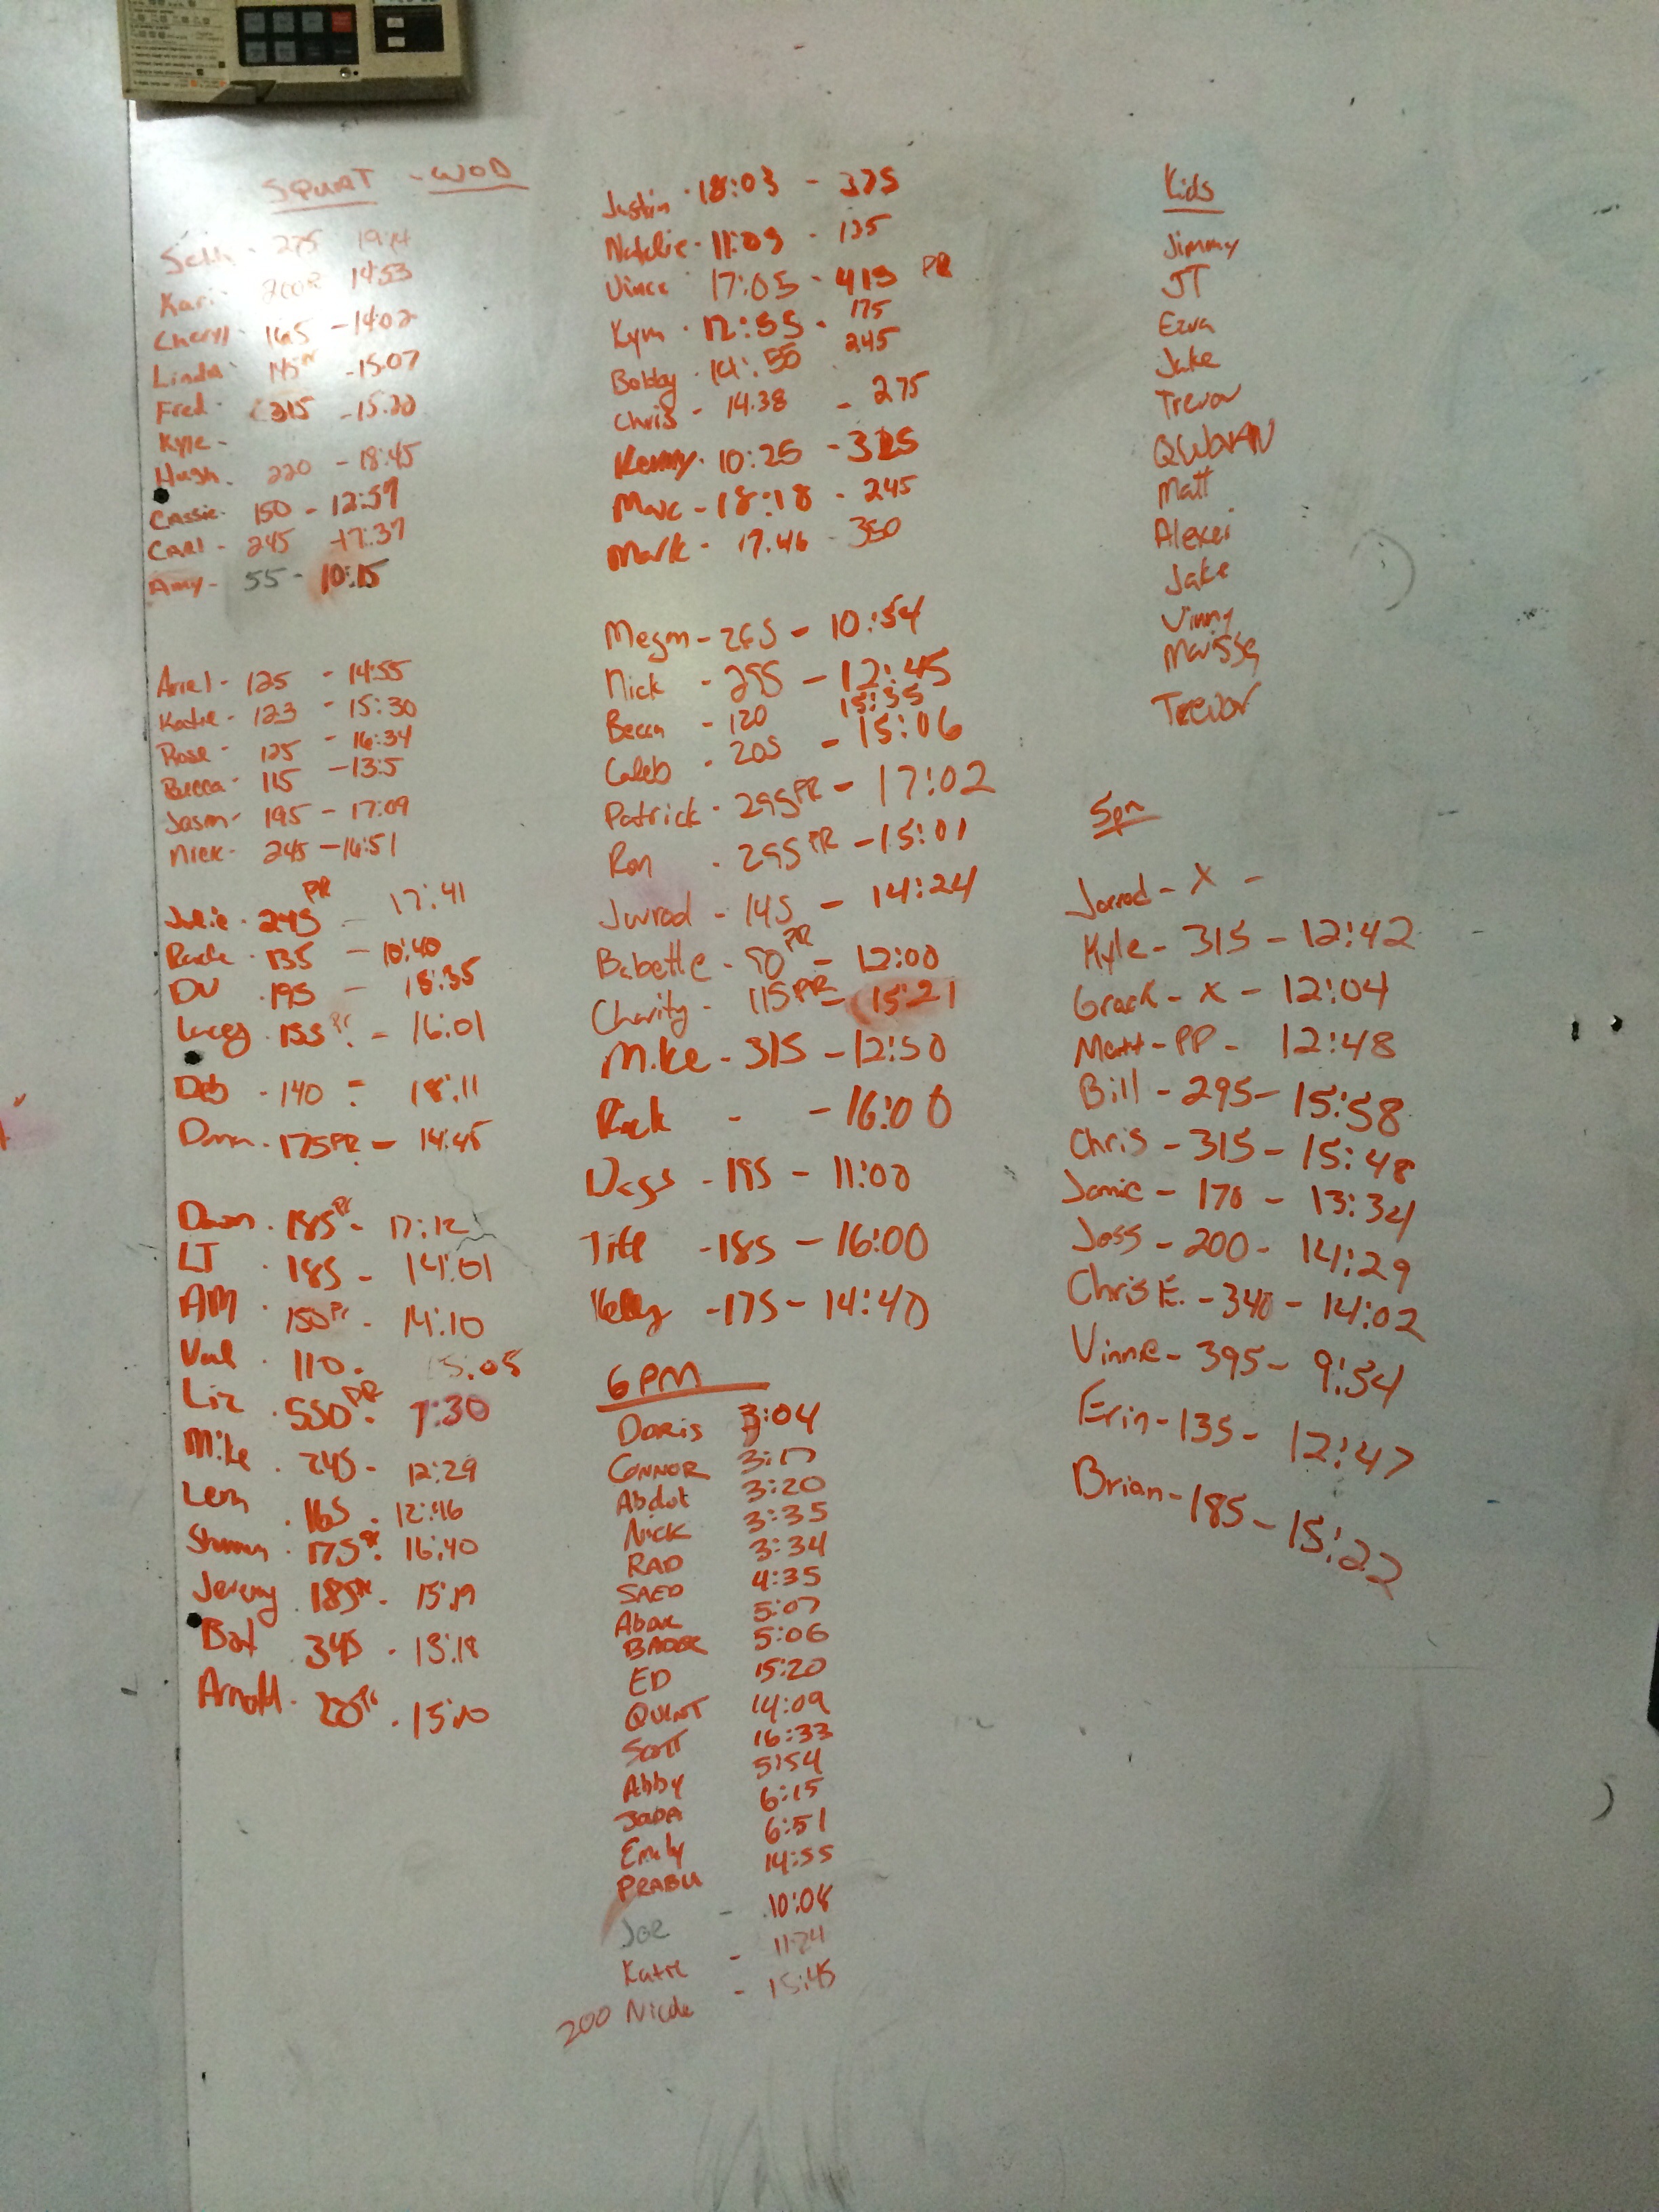 SQUAT - WOD
275 19:14
Kari 14:53
Cheryl 165 - 14:02
Linda 145 - 15:07
Fred - 315 - 15:20
Kyle -
Hugh. 220 - 18:45
Cassie - 150 - 12:59
CARL - 245 - 17:37
Amy - 55 - 10:15
Ariel - 125 - 14:55
Katie - 123 - 15:30
Rose - 125 - 16:34
Becca - 115 - 13:5
Jason - 195 - 17:09
Nick - 245 - 16:51
Julie - 245 PR - 17:41
135 - 10:40
DV - 195 - 15:35
Lacey - 155 PR - 16:01
Deb - 140 - 18:11
175 PR - 14:45
Dawn - 185 PR - 17:12
LT - 185 - 14:01
AM - 150 PR - 14:10
Val - 110 - 15:05
Liz - 550 PR - 7:30
Mike - 245 - 12:29
165 - 12:46
175 PR - 16:40
Jeremy 185 PR - 15:19
Bat 345 - 13:18
Arnold - 15:10
Justin - 18:03 - 375
Natalie - 11:09 - 135
Vince 17:05 - 415 PR
Kym - 12:55 - 175
Bobby - 14:50 245
Chris - 14:38 - 275
Kenny - 10:25 - 325
Marc - 18:18 - 245
Mark - 17:46 - 350
Megan - 265 - 10:54
Nick - 295 - 12:45
Becca - 120 15:35
Caleb - 205 - 15:06
Patrick - 295 PR - 17:02
Ron - 255 PR - 15:01
Jarrod - 145 - 14:24
Babette - 90 PR - 12:00
Charity - 115 PR - 15:21
Mike - 315 - 12:50
Rick - - 16:00
- 195 - 11:00
Tiff - 185 - 16:00
Kelly - 175 - 14:40
6 PM
Doris 3:04
CONNOR 3:17
Abdot 3:20
NICK 3:35
RAD 3:34
SAED 4:35
5:07
BADER 5:06
ED 15:20
QUINT 14:09
SCOTT 16:33
Abby 5:54
JADA 6:15
Emily 6:51
PRABU 14:55
JOE - 10:08
Katie - 11:24
200 Nicole - 15:45
Kids
Jimmy
JT
Ezra
Jake
Trevor
QWORAN
Matt
Alexei
Jake
Vinny
Marissa
Trevor
5pm
Jarrod - X -
Kyle - 315 - 12:42
Grack - X - 12:04
Matt - PP - 12:48
Bill - 295 - 15:58
Chris - 315 - 15:48
Jamie - 170 - 13:34
Jess - 200 - 14:29
Chris E. - 340 - 14:02
Vinnie - 395 - 9:54
Erin - 135 - 12:47
Brian - 185 - 15:22